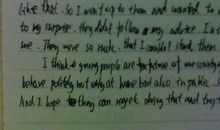 like this. So I went up to them and wanted to
to my surprise, they didn't follow my advice. I
me. They were so rude, that I couldn't stand them.
I think young people are future of our country
behave politely not only at home but also in public.
And I hope they can regret doing that and try